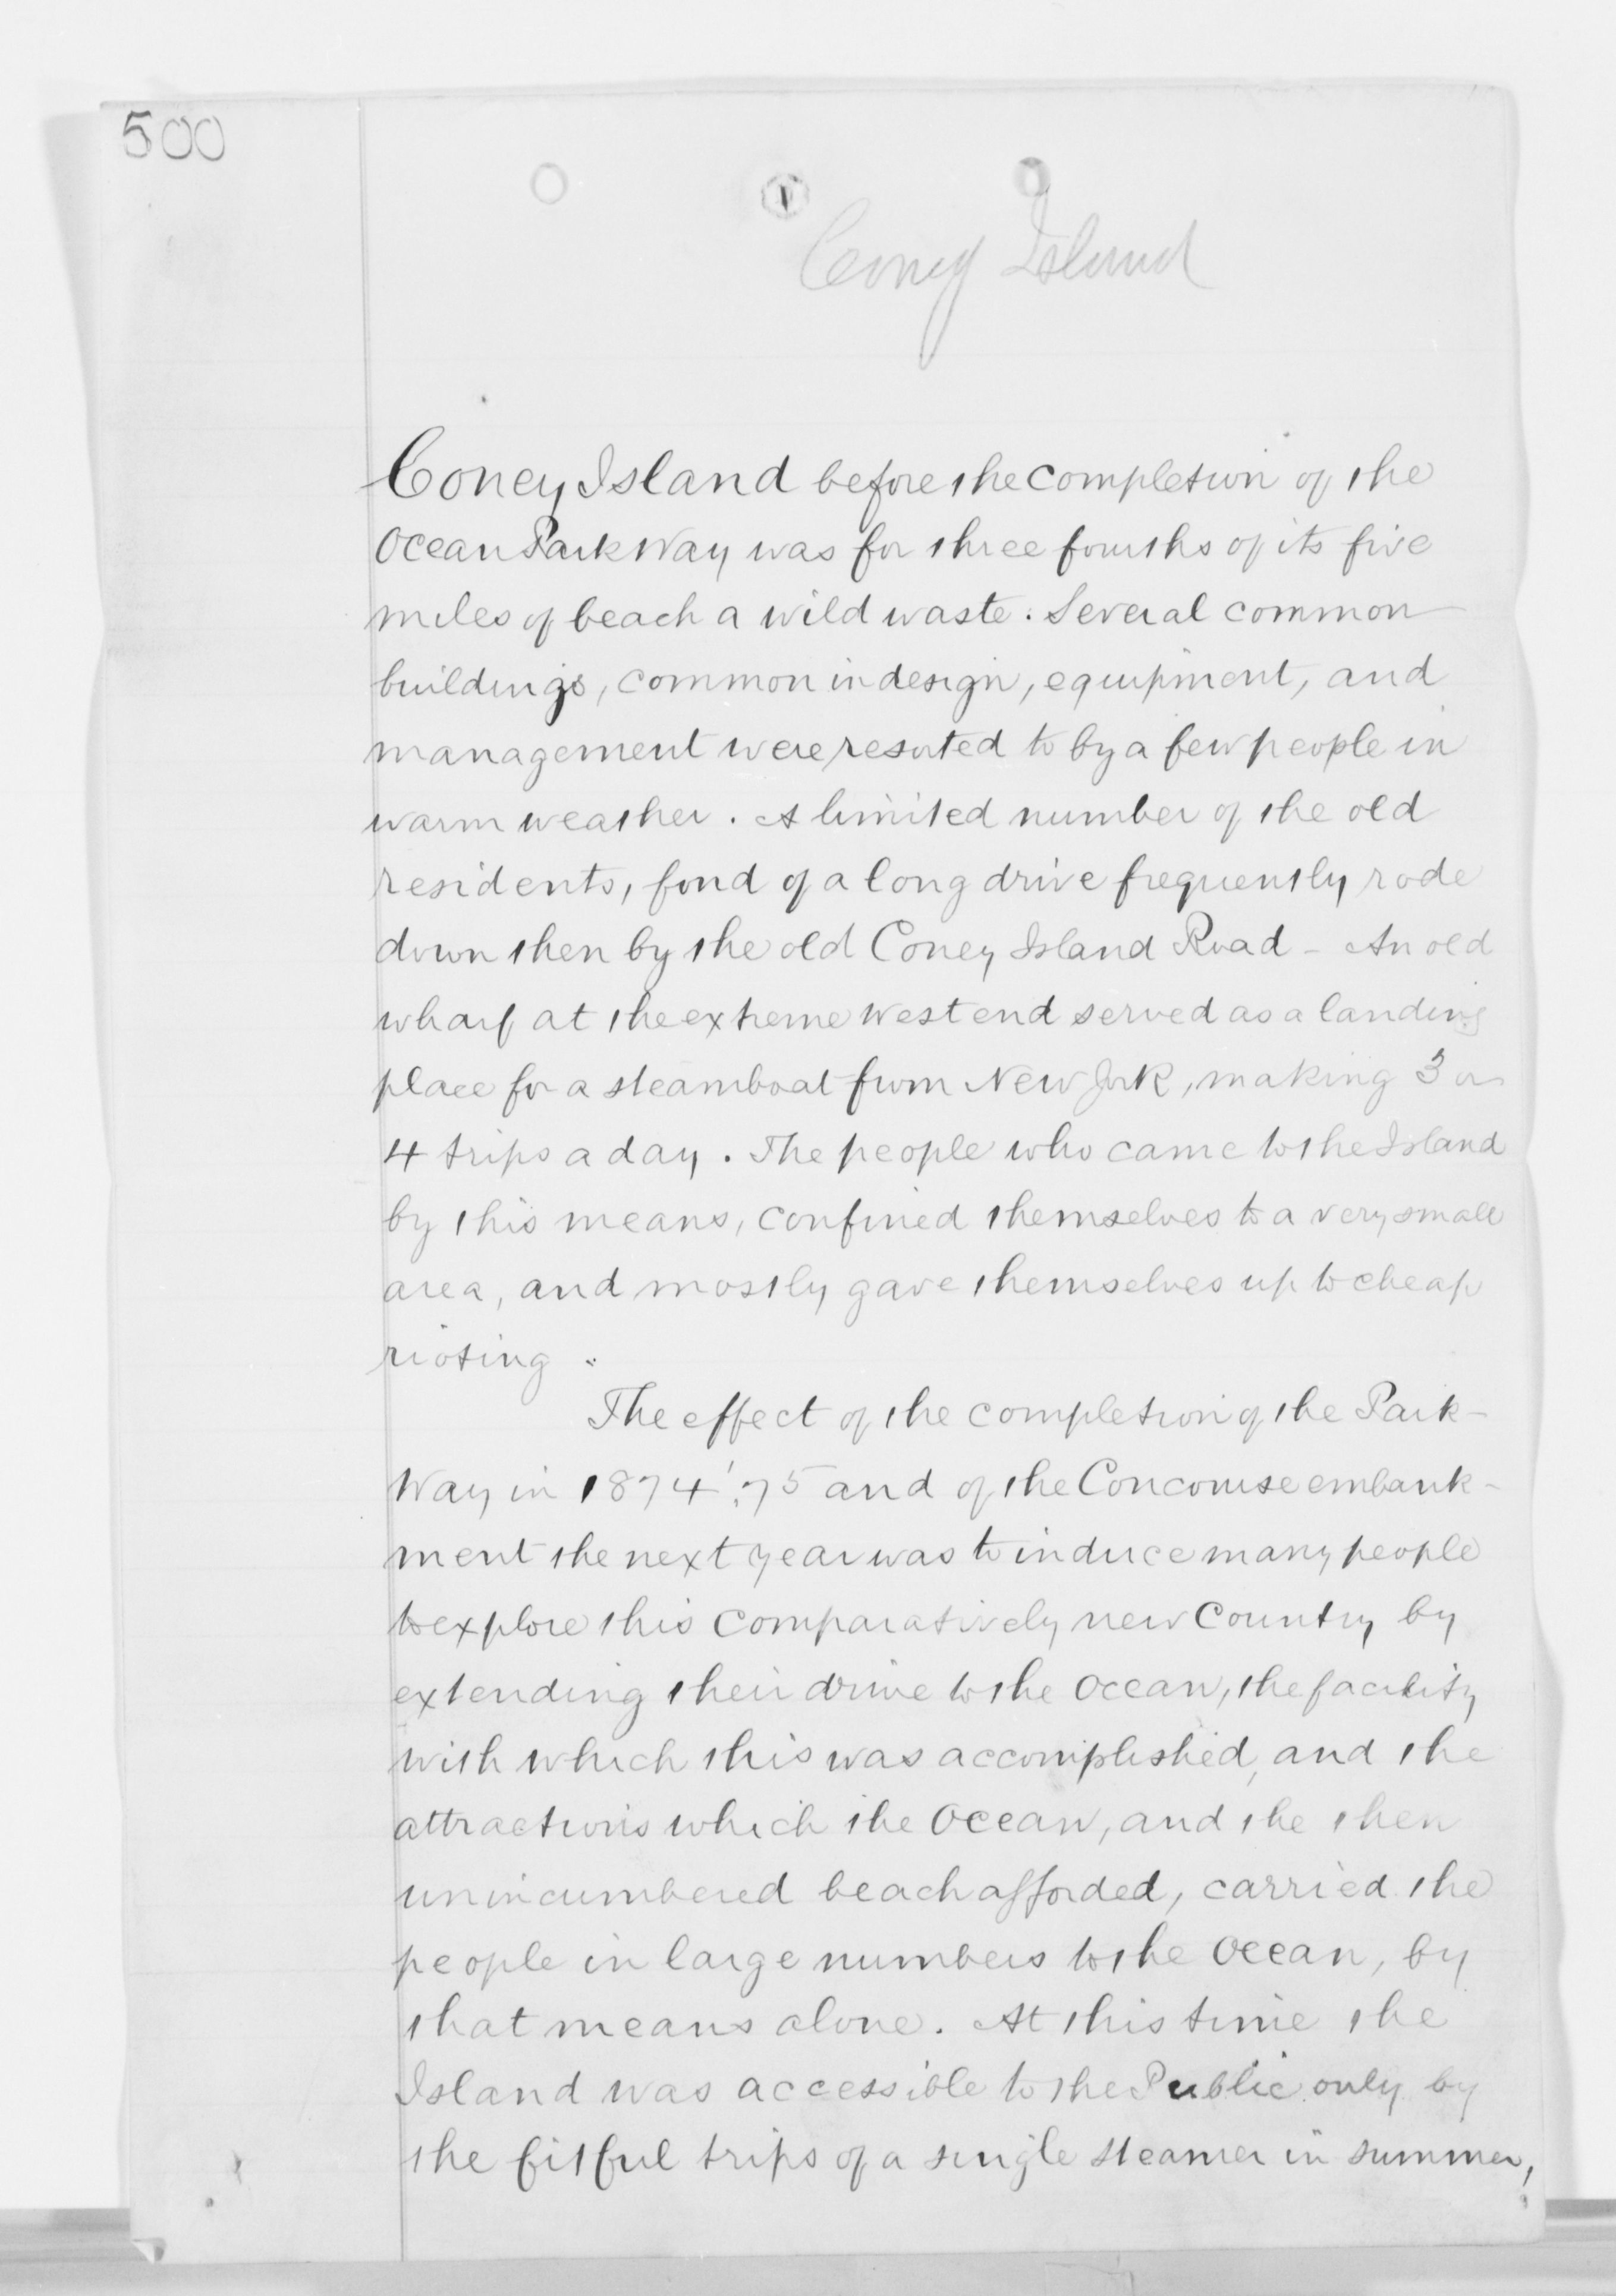 500
Coney Island
Coney Island before the completion of the
Ocean ParkWay was for three fourths of its five
miles of beach a wild waste. Several common
buildings, common in design, equipment, and
management were resorted to by a few people in
warm weather. A limited number of the old
residents, fond of a long drive frequently rode
down then by the old Coney Island Road - An old
wharf at the extreme west end served as a landing
place for a steamboat from New York, making 3 or
4 trips a day. The people who came to the Island
by this means, confined themselves to a very small
area, and mostly gave themselves up to cheap
rioting.
The effect of the completion of the Park-
Way in 1874 '75 and of the Concourse embank-
ment the next year was to induce many people
to explore this comparatively new Country by
extending their drive to the Ocean, the facility
with which this was accomplished, and the
attractions which the Ocean, and the then
unincumbered beach afforded, carried the
people in large numbers to the Ocean, by
that means alone. At this time the
Island was accessible to the Public only by
the fitful trips of a single steamer in summer,